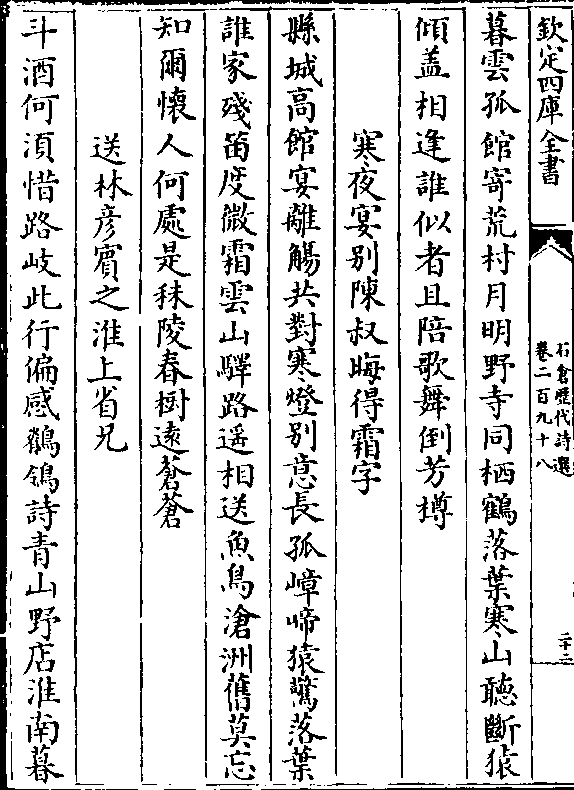 欽定四庫全書
石倉歷代詩選
卷二百九十八
二十二
暮雲孤館寄荒村月明野寺同栖鶴落葉寒山聽斷猿
傾盖相逢誰似者且陪歌舞倒芳樽
寒夜宴别陳叔晦得霜字
縣城高館宴離觴共對寒燈别意長孤嶂啼猿驚落葉
誰家殘笛度微霜雲山驛路遥相送魚鳥滄洲舊莫忘
知爾懷人何處是秣陵春樹遠蒼蒼
送林彦賓之淮上省兄
斗酒何湏惜路岐此行偏感鶺鴒詩青山野店淮南暮